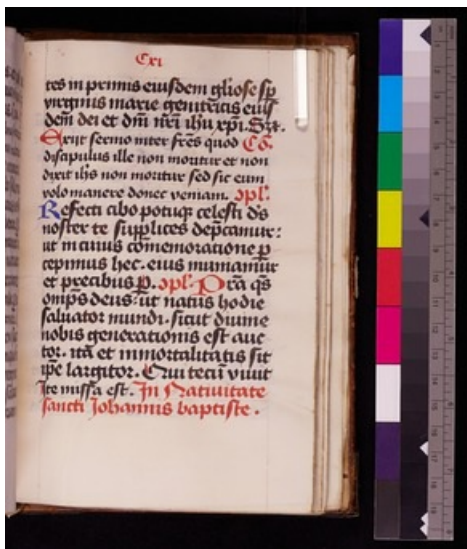 Cxi
tes in primis eiusdem gliose sp
virginis marie genitricis eius
dem dei et dm nri ihu xpi. Sra.
Exijt sermo inter fres quod Co.
discipulus ille non moritur et non
dixit ihs non moritur sed sic eum
volo manere donec veniam. opl.
Refecti cibo potuq celesti ds
noster te supplices depcamur:
ut in cuius comemoratione p
cepimus hec. eius muniamur
et precibus p. opl. Pra qs
omps deus: ut natus hodie
saluator mundi. sicut diuine
nobis generationis est auc
tor. ita et immortalitatis sit
ipe largitor. Qui tecu viuit
Ite missa est. In Natiuitate
sancti Johannis baptiste.